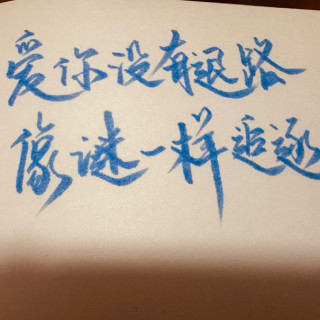 爱你没有退路
像谜一样追逐